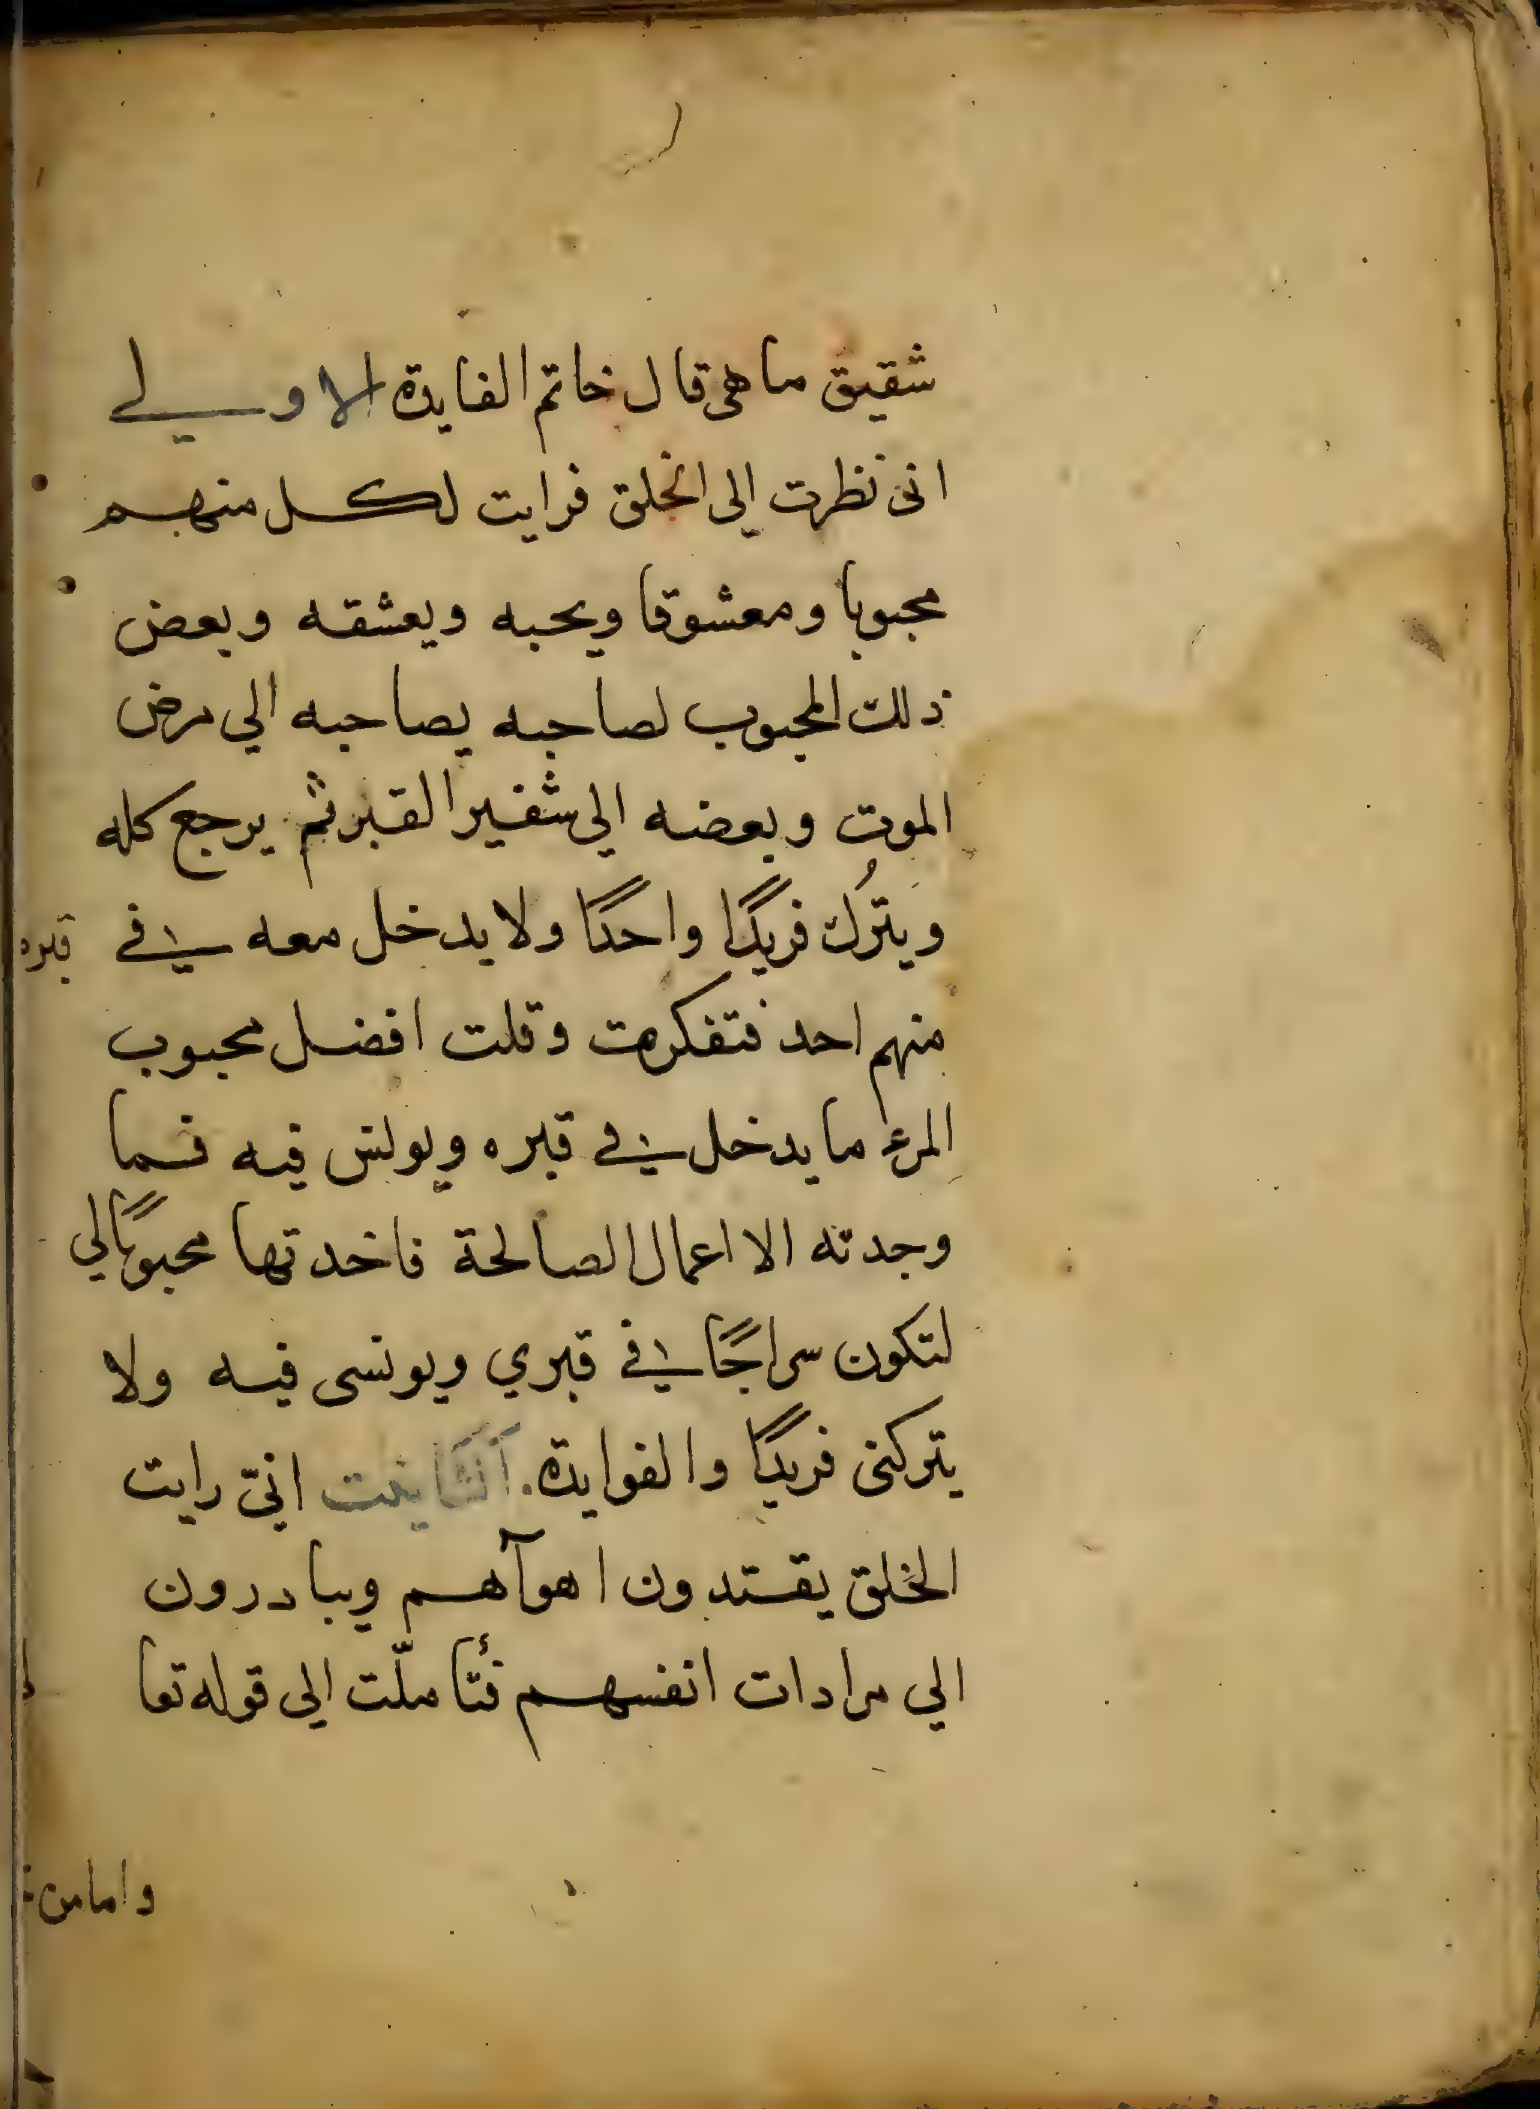 شقيق ما هى قال خاتم الفايدة الاولي
انى نظرت الى الخلق فرايت لكل منهم
محبوبا ومعشوقا ويحبه ويعشقه وبعض
ذلك المحبوب لصاحبه يصاحبه الي مرض
الموت وبعضه الى شفير القبر ثم يرجع كله
ويترُك فريدًا واحدًا ولا يدخل معه في قبره
منهم احد فتفكرت وقلت افضل محبوب
المرء ما يدخل في قبره ويونس فيه فما
وجدته الا اعمال الصالحة فاخدتها محبوبًا لي
لتكون سراجًا في قبري ويونسى فيه ولا
يتركنى فريدًا والفوايدة. اَلثَانيت انيّ رايت
الخلق يقتدون اهوآهم ويبادرون
الي مرادات انفسهم فتأملّت الى قوله تعا
وامامن